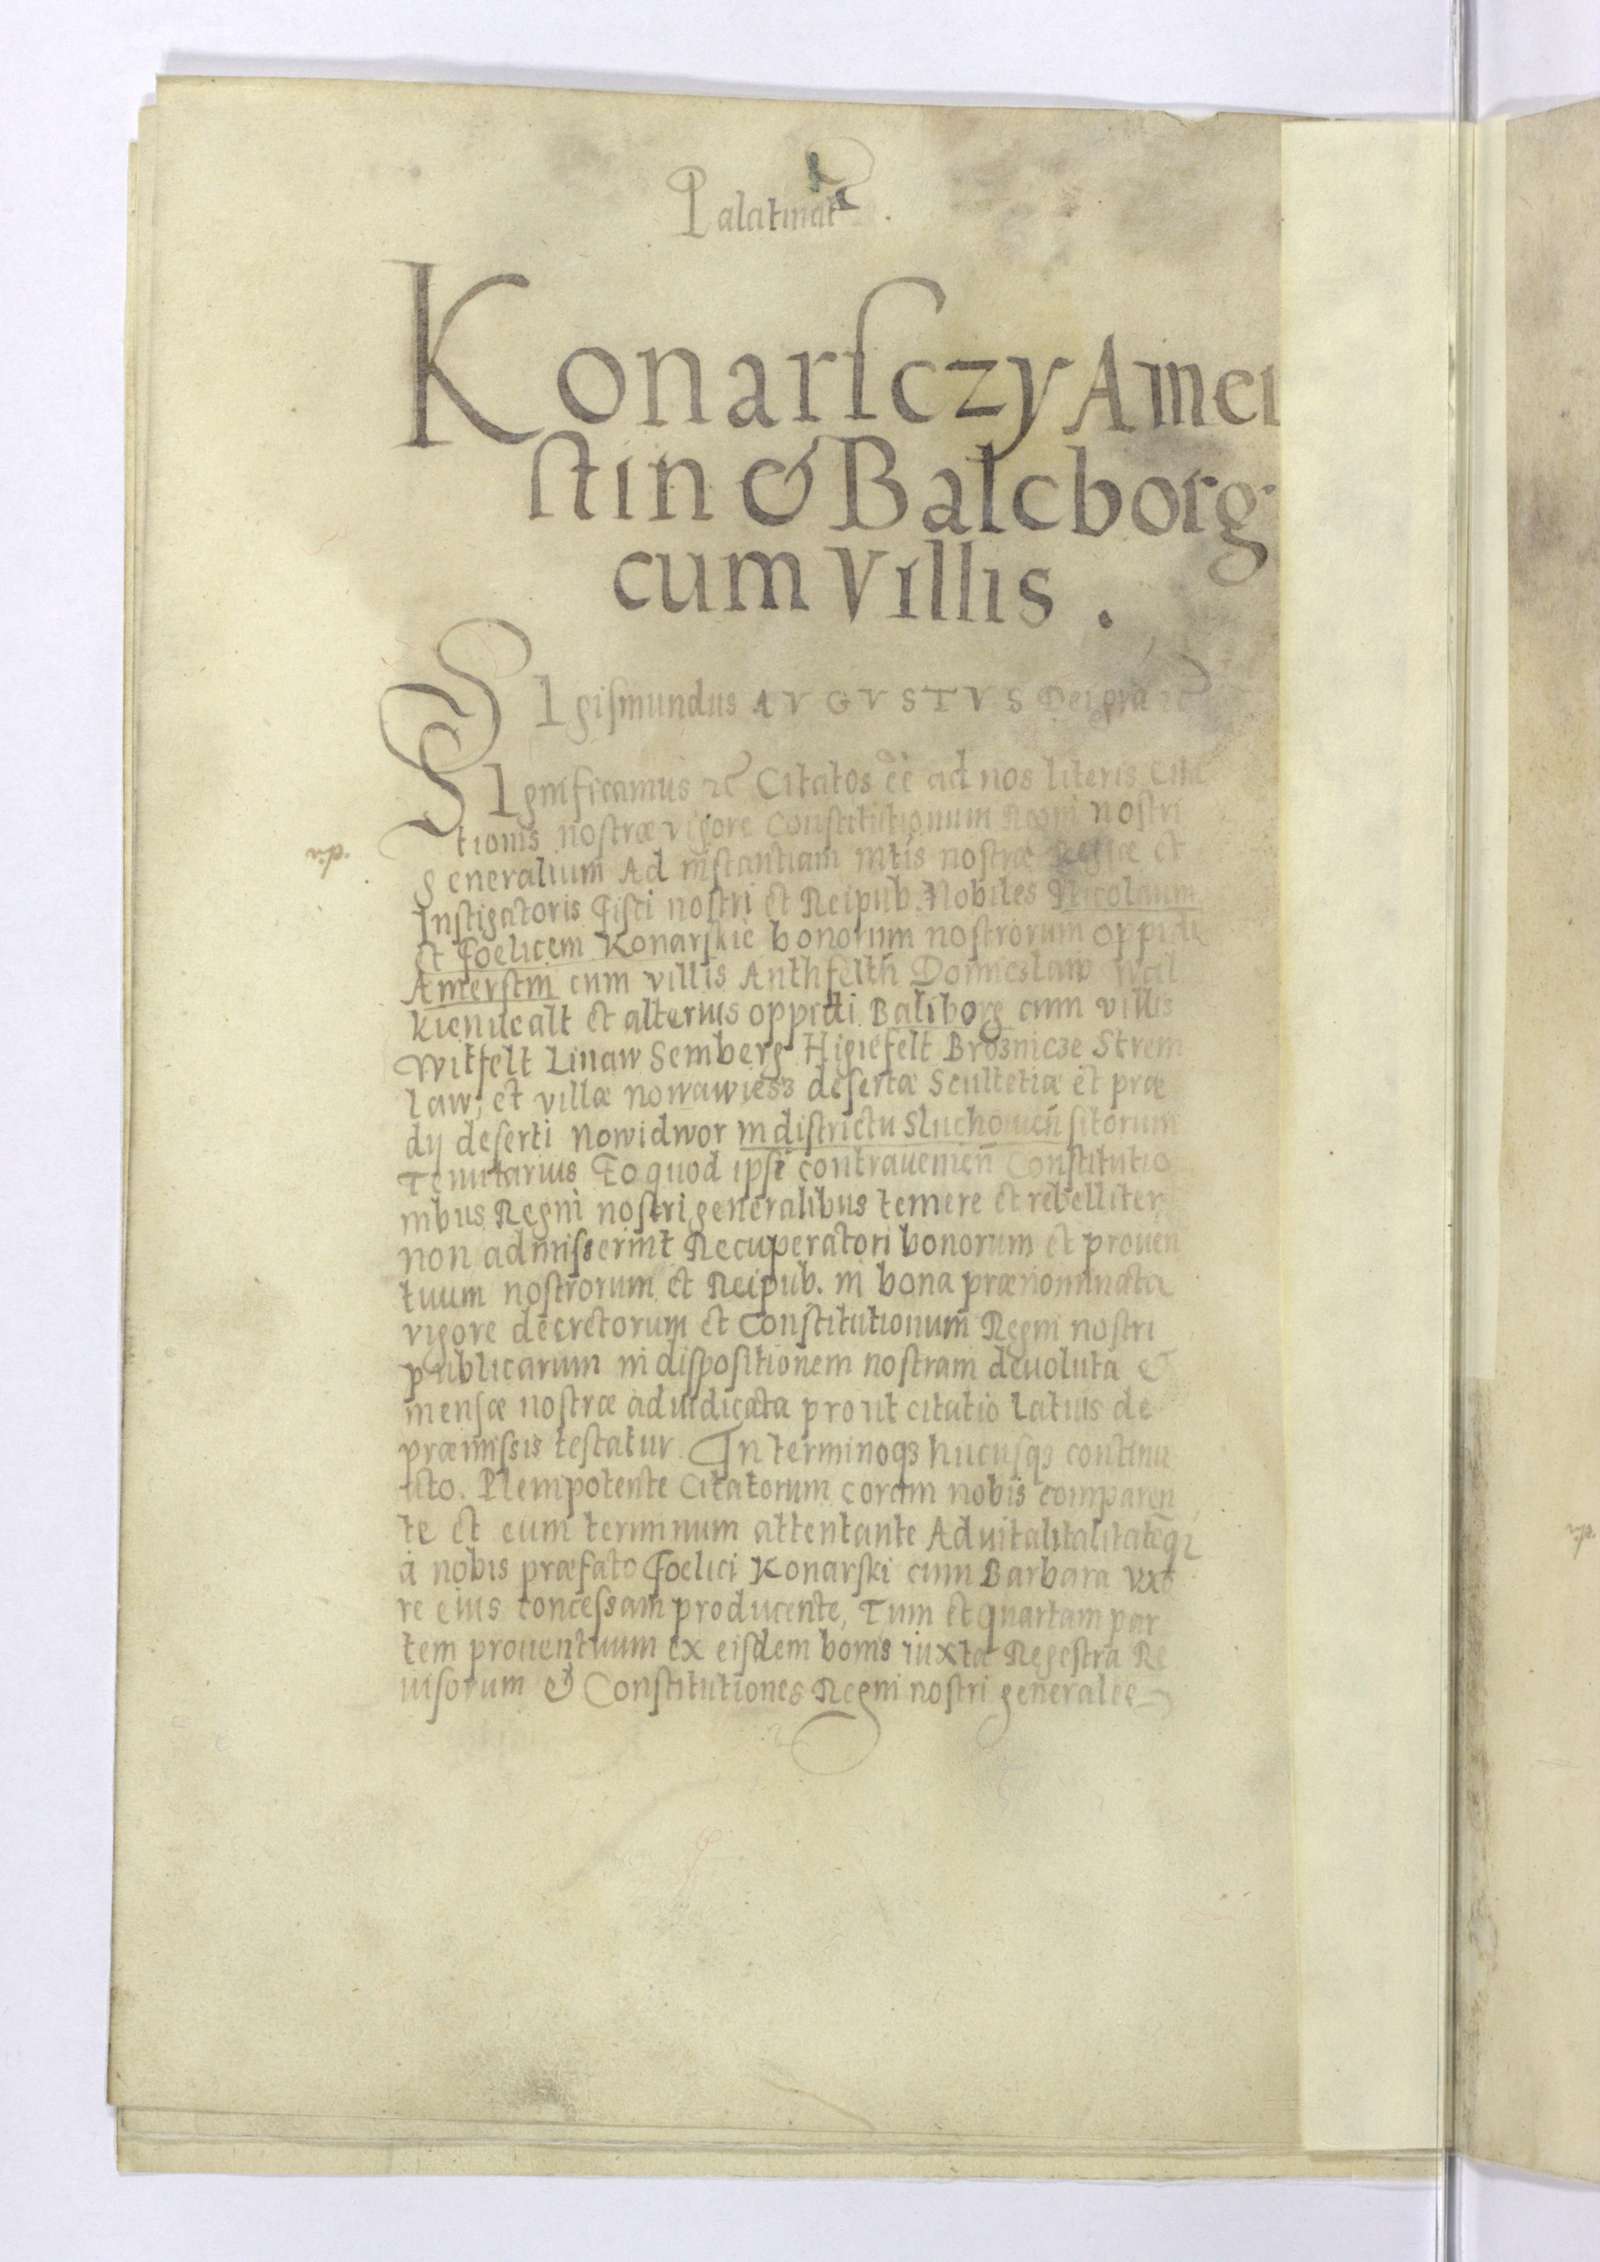 Palatinat
Konarsczy Amer
stin & Balcborg
cum Villis.
SIgismundus AVGVSTVS Dei gra
SIgnificamus Citatos ee ad nos literis Cita
tionis nostræ vigore Constitutionum Regni nostri
generalium Ad instantiam Mtis nostræ Regiæ et
Instigatoris Fisci nostri et Reipub. Nobiles Nicolaum
et Foelicem Konarskie bonorum nostrorum oppidi
Amerstin cum villis Anthfelth Domieslaw
et alterius oppidi Balborg cum villis
Witfelt Linaw Semberg Higiefelt Broznicze Strem
law, et villæ nowawiesz desertæ Scultetiæ et præ
dij deserti Nowidwor in districtu Sluchouien sitorum
Tenutarius Eo quod ipsi contrauenien Constitutio
nibus Regni nostri generalibus temere et rebelliter
non admisserint Recuperatori bonorum et prouen
tuum nostrorum et Reipub. in bona prænominata
vigore decretorum et Constitutionum Regni nostri
publicarum in dispositionem nostram deuoluta &
mensæ nostræ adiudicata prout citatio latius de
præmissis testatur. In terminoqz hucusqz continu
ato. Plenipotente Citatorum coram nobis comparen
te et eum terminum attentante Aduitalitalitateq
à nobis præfato Foelici Konarski cum Barbara vxo
re eius concessam producente, Tum et quartam par
tem prouentuum ex eisdem bonis iuxta Regestra Re
uisorum & Constitutiones Regni nostri generales